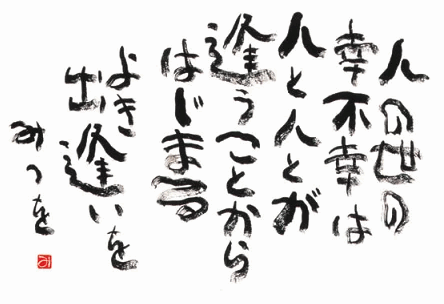 人の世の
幸不幸は
人と人とが
逢うことから
はじまる
よき
出逢いを
みつを
み